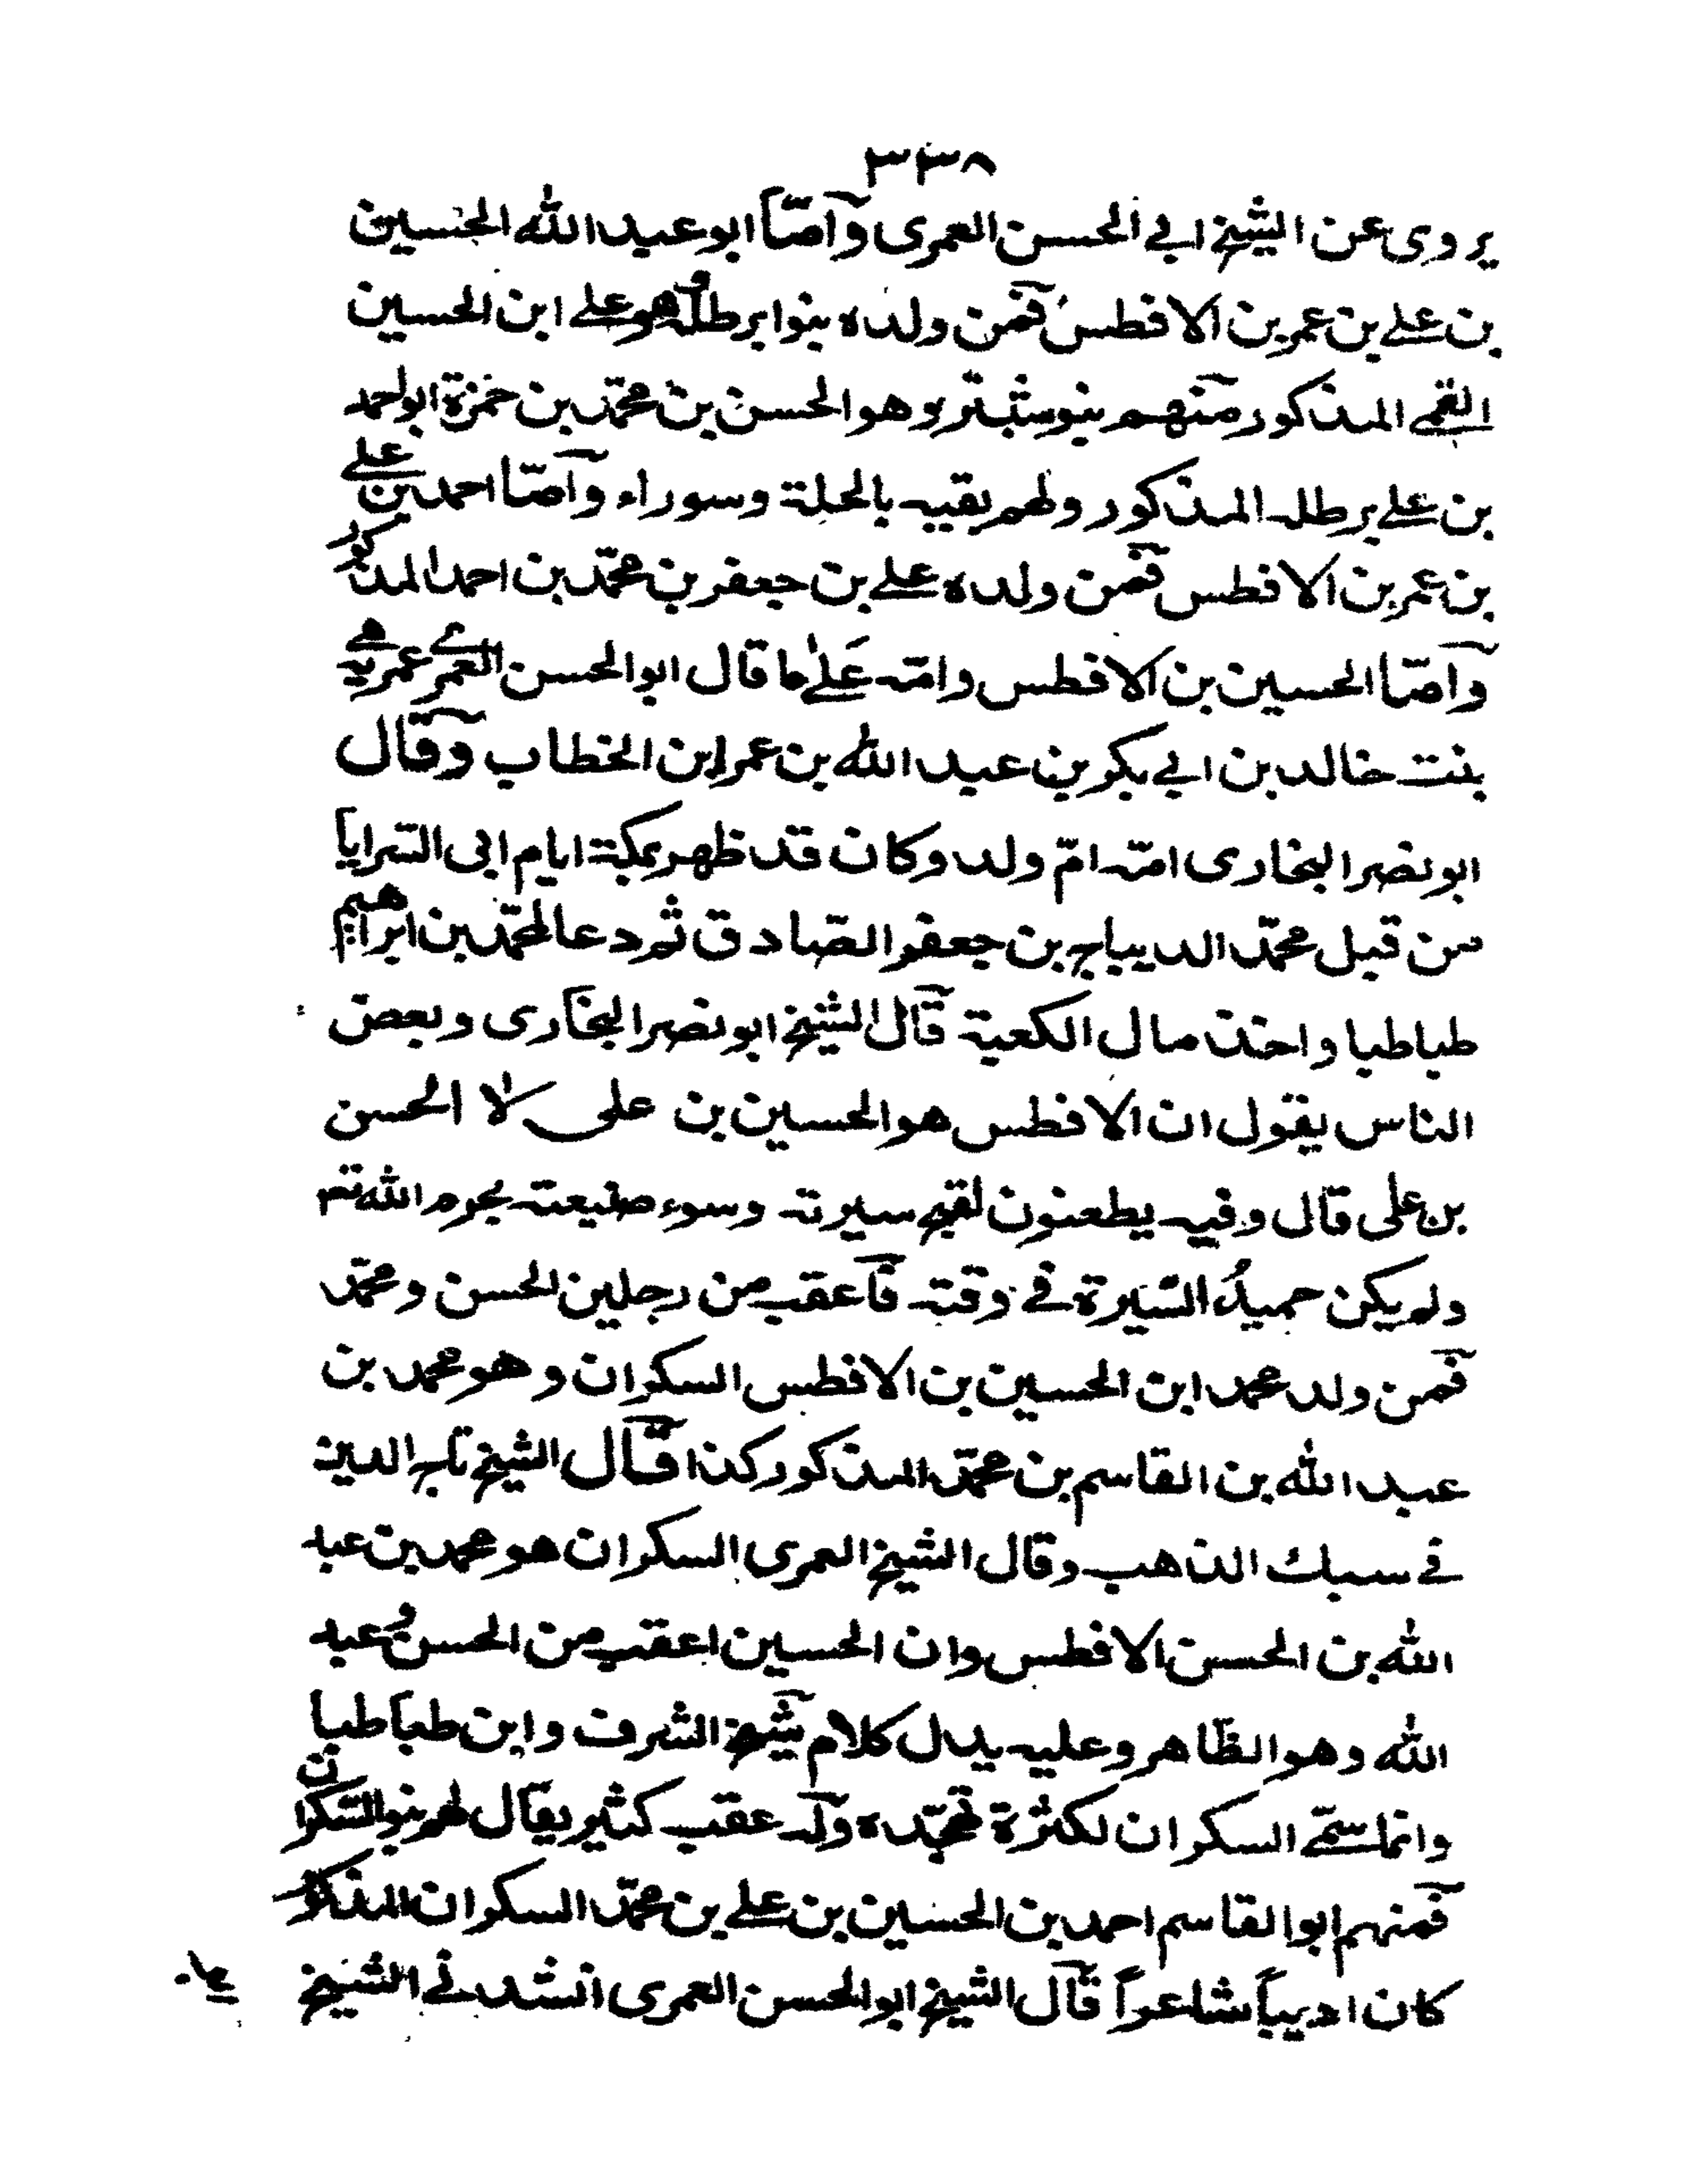 ٣٣٨
يروى عن الشيخ ابي الحسن العمرى وآمّا ابو عبد الله الحسين
بن علي بن عمر بن الافطس فمن ولده بنوا برطله وهو علي ابن الحسين
القمي المذكور منهم بنو شبتر وهو الحسن بن محمّد بن حمزة ابو احمد
بن علي برطله المذكور ولهم بقيه بالحلة وسوراء وآمّا احمد بن علي
بن عمر بن الافطس فمن ولده علي بن جعفر بن محمّد بن احمد المذكور
وآمّا الحسين بن الافطس وامّه عَلىٰ ما قال ابو الحسن العمري عمريه هي
بنت خالد بن ابي بكر بن عبد الله بن عمر ابن الخطاب وقال
ابو نصر البخارى امّه امّ ولد وكان قد ظهر بمكة ايام ابى السّرايا
من قبل محمّد الديباج بن جعفر الصّادق ثم دعا لمحمّد بن ابراهيم
طباطبا واخذ مال الكعبة قال الشيخ ابو نصر البخارى وبعض
الناس يقول ان الافطس هو الحسين بن على لا الحسن
بن على قال وفيه يطعنون لقبح سيرته وسوء صنيعته بحرم الله تعم
ولم يكن حميدُ السّيرة في وقته فآعقب من رجلين الحسن ومحمّد
فمن ولد محمد ابن الحسين بن الافطس السكران وهو محمد بن
عبد الله بن القاسم بن محمّد المذكور كذا قال الشيخ تاج الدين
في سبك الذهب وقال الشيخ العمرى السكران هو محمد بن عبد
الله بن الحسن الافطس وان الحسين اعقب من الحسن وعبد
الله وهو الظّاهر وعليه يدل كلام شيخ الشرف وابن طباطبا
وانما سمّي السكران لكثرة تهجّده وله عقب كثير يقال لهم بنو السّكران
فمنهم ابو القاسم احمد بن الحسين بن علي بن محمّد السكران المذكور
كان اديباً شاعراً قال الشيخ ابو الحسن العمرى انشدني الشيخ